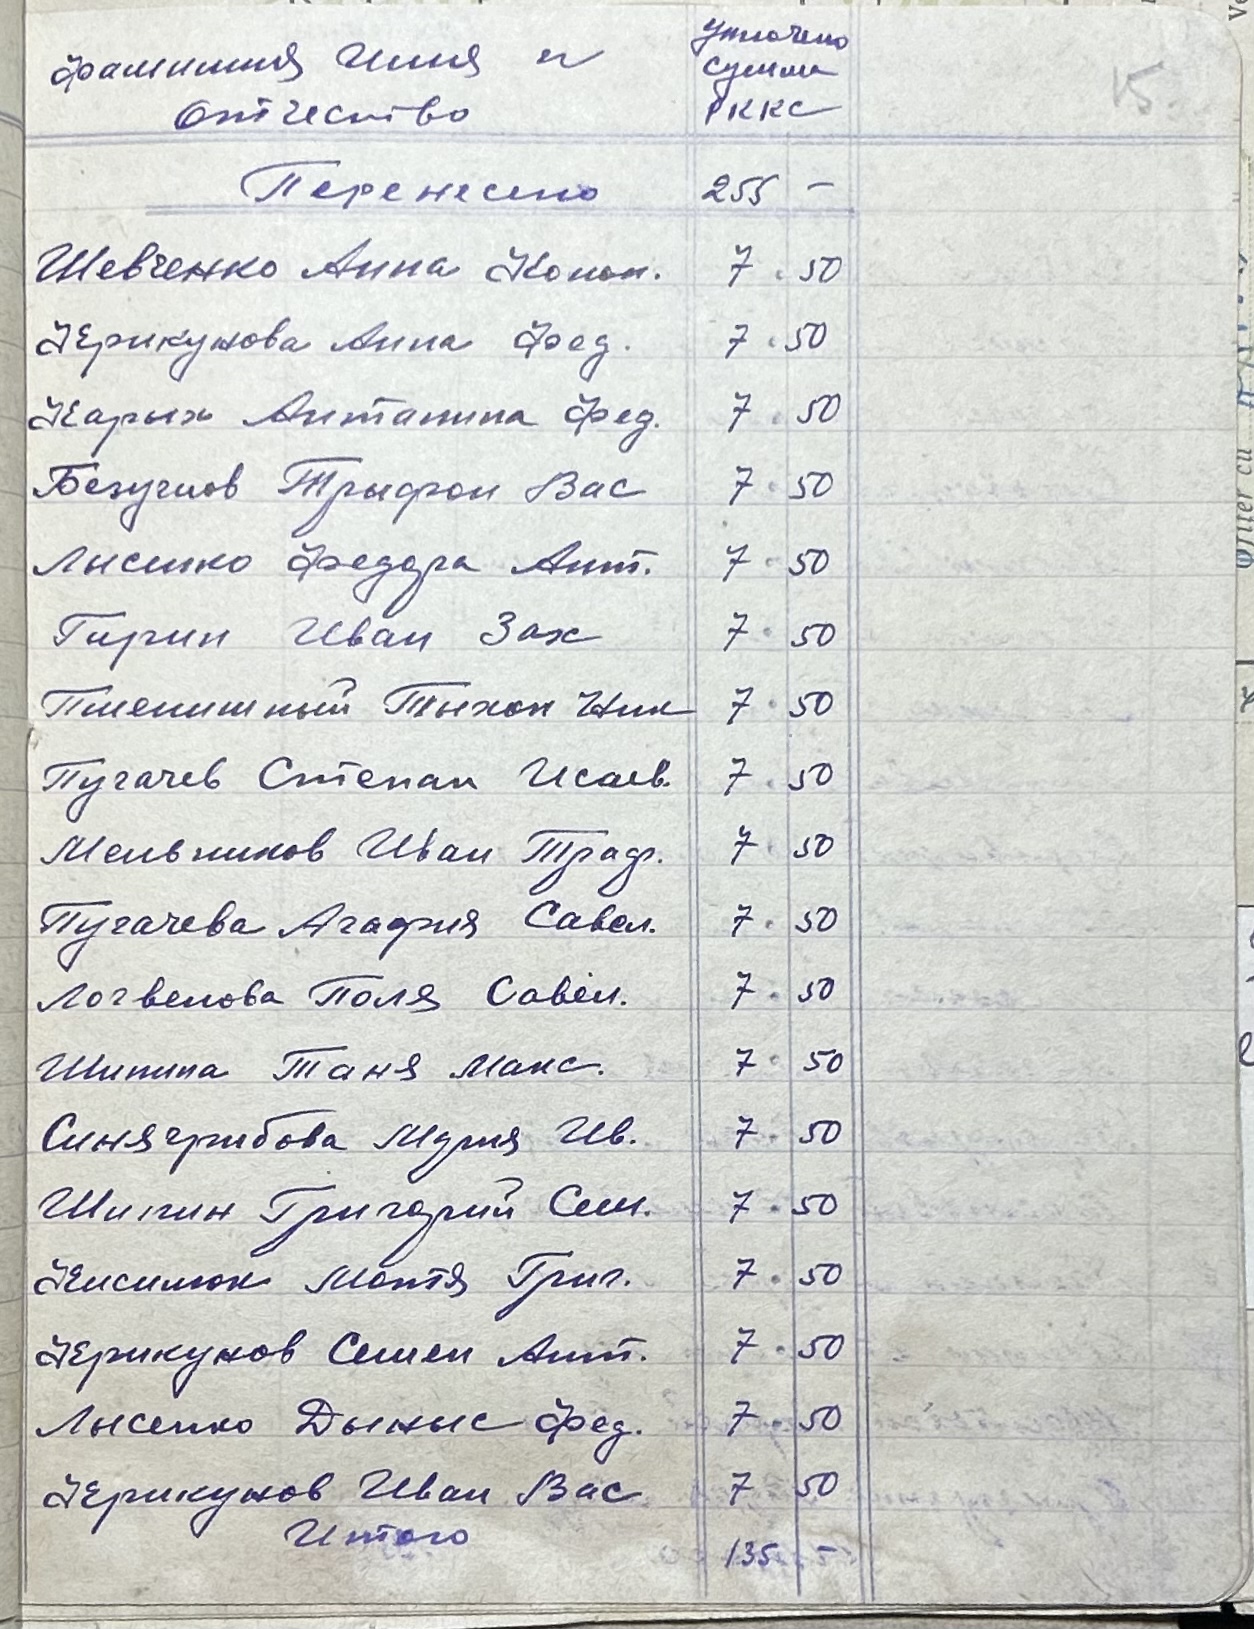 Фамилия Имя и
Отчество
Уплочено
сумма
РККС
15
Перенесено 255 -
Шевченко Анна Конон. 7.50
Керикунова Анна Фед. 7.50
Карых Антанина Фед. 7.50
Безуглов Трыфон Вас 7.50
Лысенко Федора Ант. 7.50
Гирин Иван Зах 7.50
Пшенишный Тыхон Ник 7.50
Пугачев Степан Исаев. 7.50
Мельников Иван Траф. 7.50
Пугачева Агафия Савел. 7.50
Логвенова Поля Савел. 7.50
Шипина Таня Макс. 7.50
Синягрибова Мария Ив. 7.50
Шипин Григорий Сем. 7.50
Кисилюк Мотя Григ. 7.50
Керикунов Семен Ант. 7.50
Лысенко Дыныс Фед. 7.50
Керикунов Иван Вас 7 50
Итого 135 -